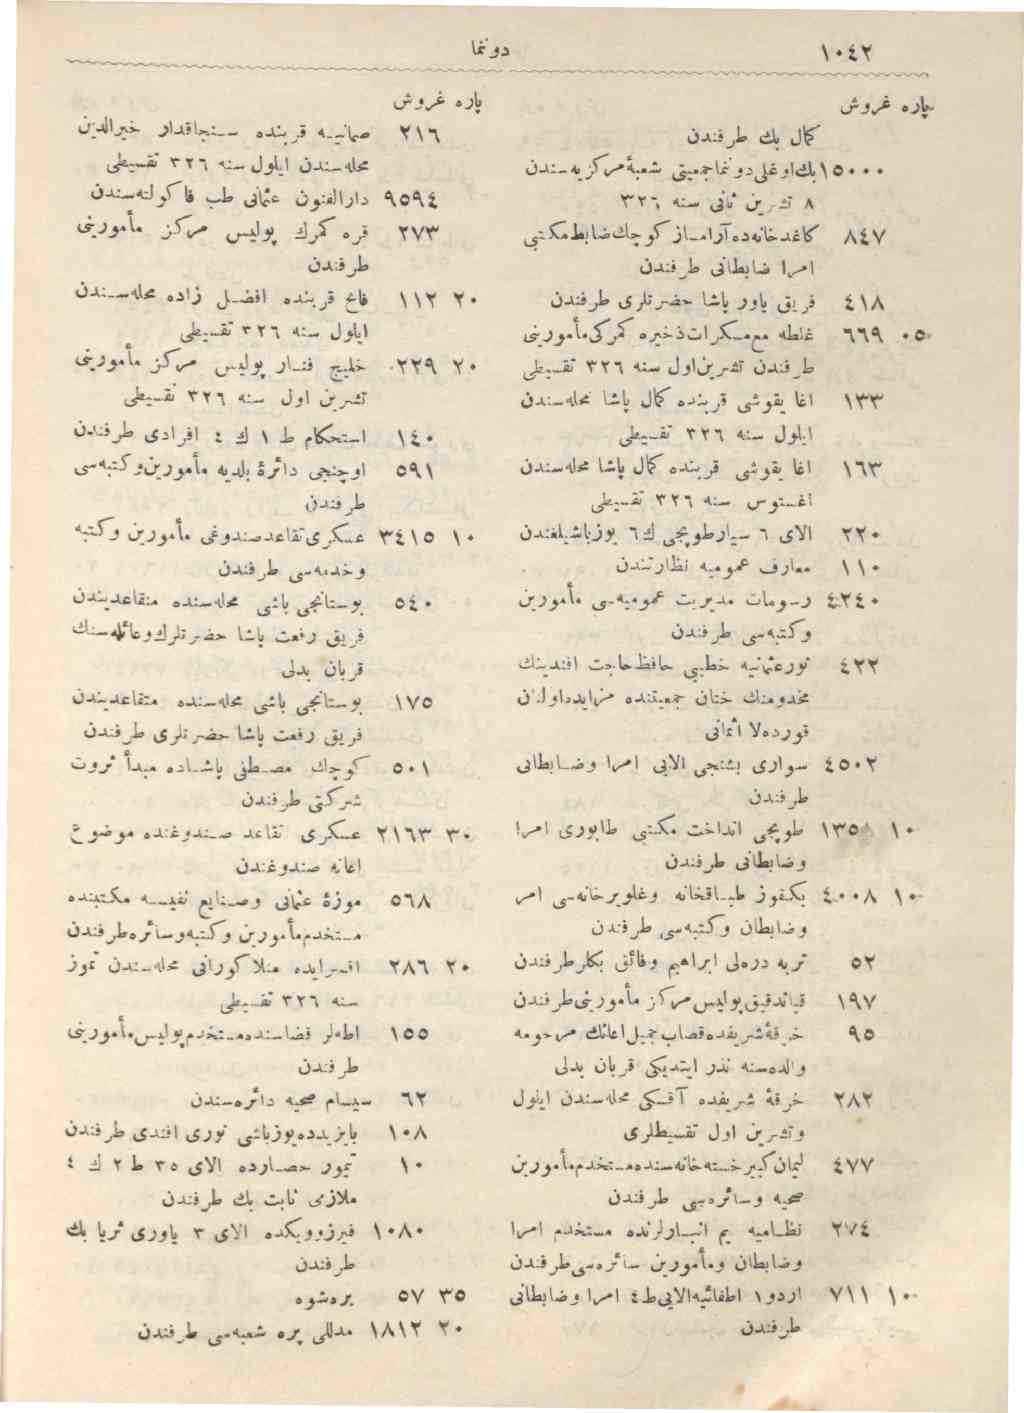 ١٠٤٢
دوننما
پاره غروش
كمال بك طرفندن
١٥٠٠٠ بك اوغلی دوننما جمعیتی شعبهٔ مرکزیه سندن
٨ تشرین ثانی سنه ٣٢٦
٨٤٧ كاغدخانه‌ده آراماز كوچك ضابط مكتبی
امرا ضابطانی طرفندن
٤١٨ فریق یاور پاشا حضرتلری طرفندن
٠٥ ٦٦٩ غلطه مع مسكرات ذخیره كمركی مأمورینی
طرفندن تشرین اول سنه ٣٢٦ تقسیطی
١٣٣ اغا یقوشی قربنده كمال پاشا محله‌سندن
ایلول سنه ٣٢٦ تقسیطی
١٦٣ اغا یقوشی قربنده كمال پاشا محله‌سندن
اغستوس سنه ٣٢٦ تقسیطی
٢٢٠ الای ٦ سیار طوپجی ك ٦ یوزباشیلغندن
١١٠ معارف عمومیه نظارتندن
٤٢٤٠ رسومات مدیریت عمومیه‌سی مأمورین
وكتبه‌سی طرفندن
٤٢٢ نورعثمانیه خطیبی حافظ حاجت افندینك
مخدومنك ختان جمعیتنده مزایده اولنان
قورده‌لا اثمانی
٤٥٠٢ سواری بشنجی الایی امرا وضابطانی
طرفندن
١٠ ١٣٥٨ طوپجی انداخت مكتبی طابوری امرا
وضابطانی طرفندن
١٠ ٤٠٠٨ بكقوز طباقخانه وغلوبرخانه‌سی امر
وضابطان وكتبه‌سی طرفندن
٥٢ تربه دره‌لی ابراهیم وفائق بكلر طرفندن
١٩٧ قپاندقیق پولیس مركز مأمورینی طرفندن
٩٥ خرقهٔ شریفده قصاب جمیل اغانك مرحومه
والده‌سنه نذر ایتدیكی قربان بدلی
٢٨٢ خرقهٔ شریفده آقسكی محله‌سندن ایلول
وتشرین اول تقسیطلری
٤٧٧ لیمان كبیر خسته‌خانه‌سنده مستخدم مأمورین
صحیه وسائره‌سی طرفندن
٢٧٤ نظامیه یم انبارلرنده مستخدم امرا
وضابطان ومأمورین سائره‌سی طرفندن
١٠ ٧١١ اردو ١ اطفائیه الایی ط ٤ امرا وضابطانی
طرفندن
پاره غروش
٢١٦ صمانیه قربنده سنجاقدار خیرالدین
محله‌سندن ایلول سنه ٣٢٦ تقسیطی
٩٥٩٤ دارالفنون عثمانی طب فاكولته‌سندن
٢٧٣ قره كمرك پولیس مركز مأمورینی
طرفندن
٢٠ ١١٢ فاتح قربنده افضل زاده محله‌سندن
ایلول سنه ٣٢٦ تقسیطی
٢٠ ٢٢٩ خلیج فنار پولیس مركز مأمورینی
تشرین اول سنه ٣٢٦ تقسیطی
١٤٠ استحكام ط ١ ك ٤ افرادی طرفندن
٥٩١ اوچنجی دائرهٔ بلدیه مأمورین وكتبه‌سی
طرفندن
١٠ ٣٤١٥ عسكری تقاعد صندوغی مأمورین وكتبه
وخدمه‌سی طرفندن
٥٤٠ بوستانجی باشی محله‌سنده متقاعدیندن
فریق رفعت پاشا حضرتلرك وعائله‌سنك
قربان بدلی
١٧٥ بوستانجی باشی محله‌سنده متقاعدیندن
فریق رفعت پاشا حضرتلری طرفندن
٥٠١ كوچك مصطفی پاشاده مبدأ ثروت
شركتی طرفندن
٣٠ ٢١٦٣ عسكری تقاعد صندوغنده موضوع
اعانه صندوغندن
٥٦٨ موزهٔ عثمانی وصنایع نفیسه مكتبنده
مستخدم مأمورین وكتبه وسائره طرفندن
٢٠ ٢٨٦ اقسرایده منلا كورانی محله‌سندن تموز
سنه ٣٢٦ تقسیطی
١٥٥ اطه‌لر قضاسنده مستخدم پولیس مأمورینی
طرفندن
٦٢ سیسام صحیه دائره‌سندن
١٠٨ بایزیدده یوزباشی نوری افندی طرفندن
١٠ تیمور حصارده الای ٣٥ ط ٢ ك ٤
ملازمی ثابت بك طرفندن
١٠٨٠ فیرزوویكده الای ٣ یاوری ثریا بك
طرفندن
٣٥ ٥٧ بره‌شوه
٢٠ ١٨١٢ مدللی پره شعبه‌سی طرفندن